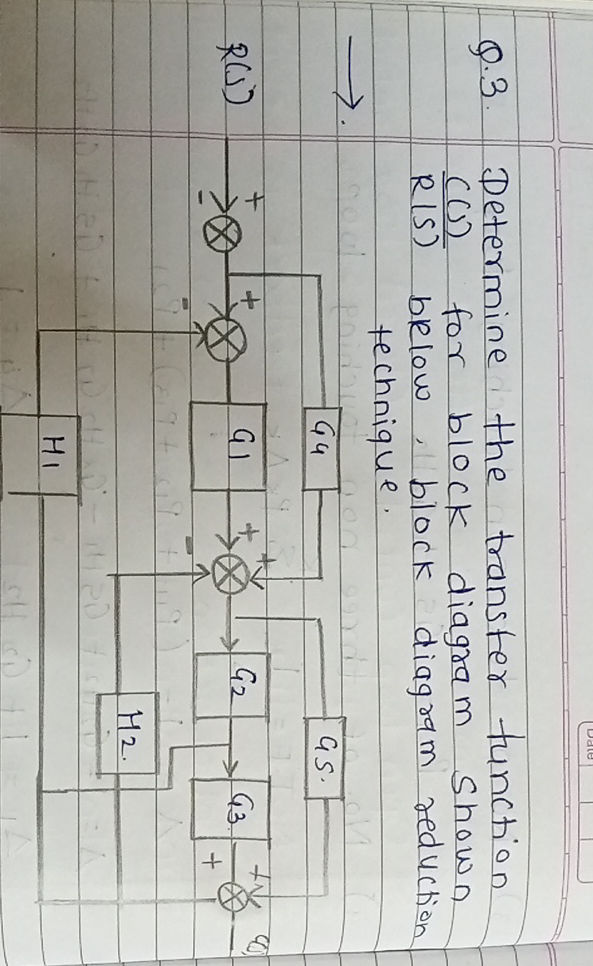 Date
Q.3. Determine the transfer function
C(S) for block diagram shown
R(S) below, block diagram reduction
technique.
→.
G4
G5.
R(S) + - + - G1 + + - G2 G3 + +
H2.
H1